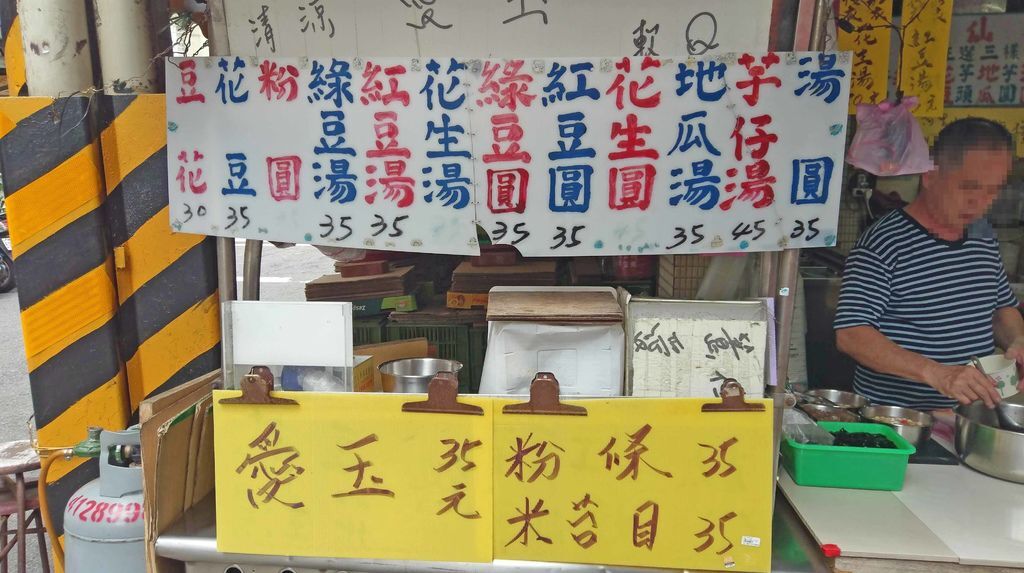 清涼 愛玉
粿 Q
豆花 30
花豆 35
粉圓
綠豆湯 35
紅豆湯 35
花生湯
綠豆圓 35
紅豆圓 35
花生圓
地瓜湯 35
芋仔湯 45
湯圓 35
愛玉 35元
粉條 35
米苔目 35
4128999